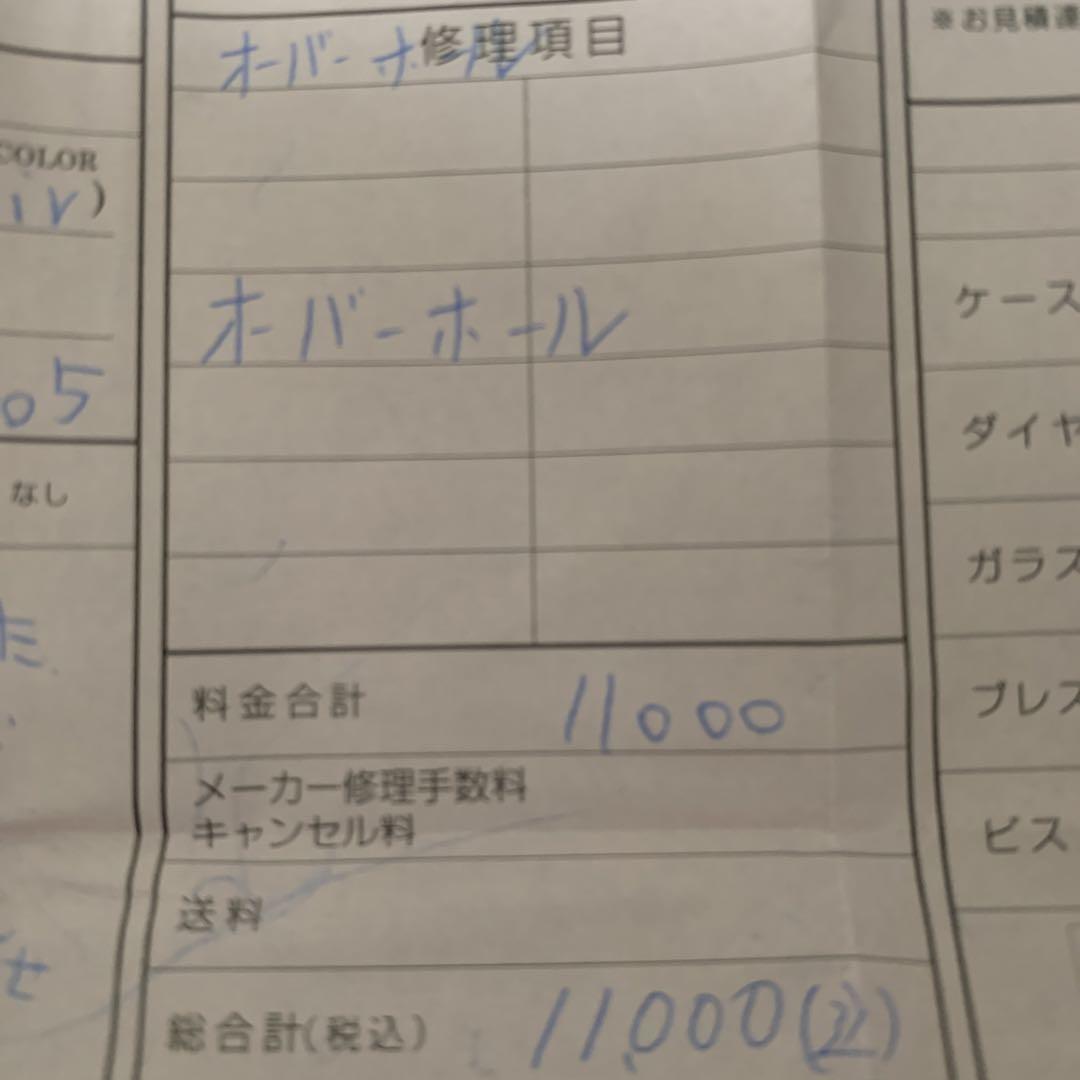 オーバーホール
修理項目
※お見積
COLOR
)
オーバーホール
ケース
05
ダイヤ
なし
ガラス
料金合計 11000
ブレス
メーカー修理手数料
キャンセル料
ビス
送料
総合計(税込) 11,000(込)